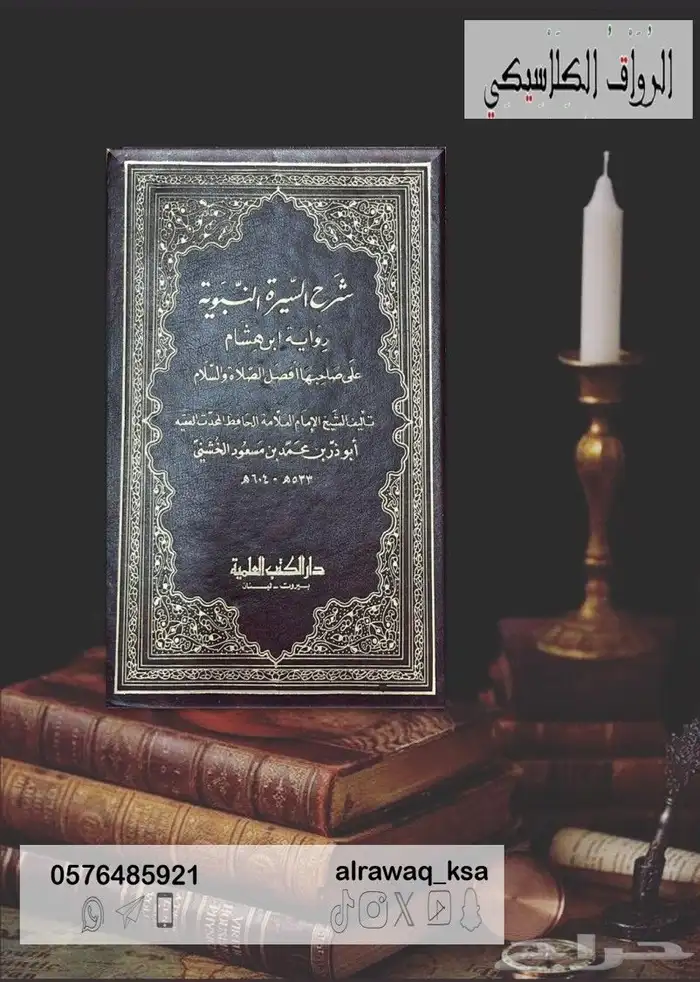 الرُوَاقُ الكَلَاسِيكِي
شَرح السِّيرة النَّبَويَّة
رِوَايَة ابن هِشَام
عَلَى صَاحِبِهَا أفضَل الصَّلَاة وَالسَّلَام
تأليف الشيخ الإمام العلامة الحافظ المحدّث الفقيه
أبو ذرّ بن محمَّد بن مَسعُود الخُشَنِيّ
٥٣٣هـ - ٦٠٤هـ
دار الكتب العلمية
بيروت - لبنان
0576485921
alrawaq_ksa
حراج